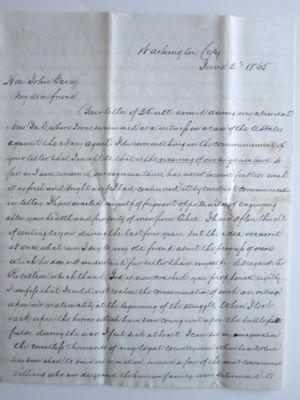 Washington City
June 2d 1865
Hon John Davis
My dear friend
Your letter of 25 ult arrived during my absence at
New York, where I was summoned as a witness in a case of the U States
against the Navy agent. I discover a thing in the commencement of
your letter that
so
far as I am concerned, our acquaintance has never become
it as fresh and bright as if I had continued it by constant communication
in letters. I have availed myself of frequent opportunities of enquiring
after your health and prosperity of men from Ohio. I have often thought
of writing to you during the last four years, but the idea occurred
at once, what can I say to my old friend about the progress of events
which he does not understand far better than myself. As regards the
Rebellion which thank God, is now crushed, you, first, judged rightly,
I confess that I could not realize the consummation of such an outrage
upon our nationality at the beginning of the struggle. When I look
back upon the horrors which have been consequent upon the battle
fields during the war I feel sick at heart. I can see in imagination
the countless thousands of my loyal countrymen whose heart blood
has been shed to save us a nation because a few of the most consummate
villains who ever disgraced the human family, were determined to